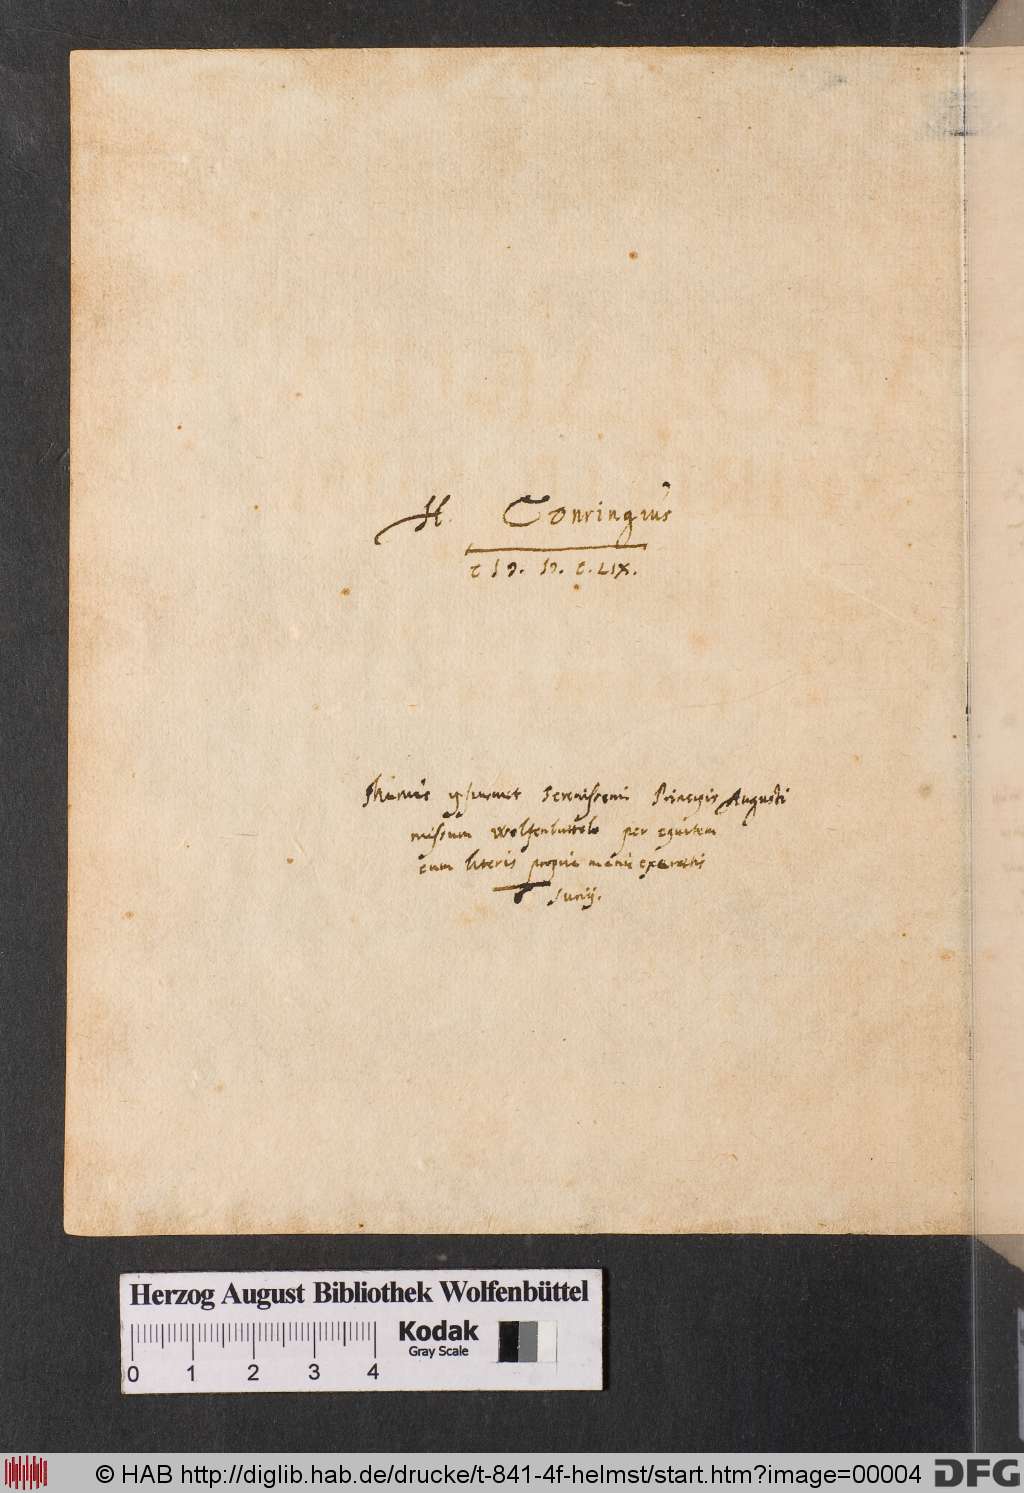 H. Conringius
c Iↄ. Iↄ. c. LIX.
Munus ipsiusmet Serenissimi Principis Augusti
missum Wolfenbuttelo per equitem
cum literis propria manu exaratis
Junij.
Herzog August Bibliothek Wolfenbüttel
Kodak
Gray Scale
0 1 2 3 4
© HAB http://diglib.hab.de/drucke/t-841-4f-helmst/start.htm?image=00004
DFG